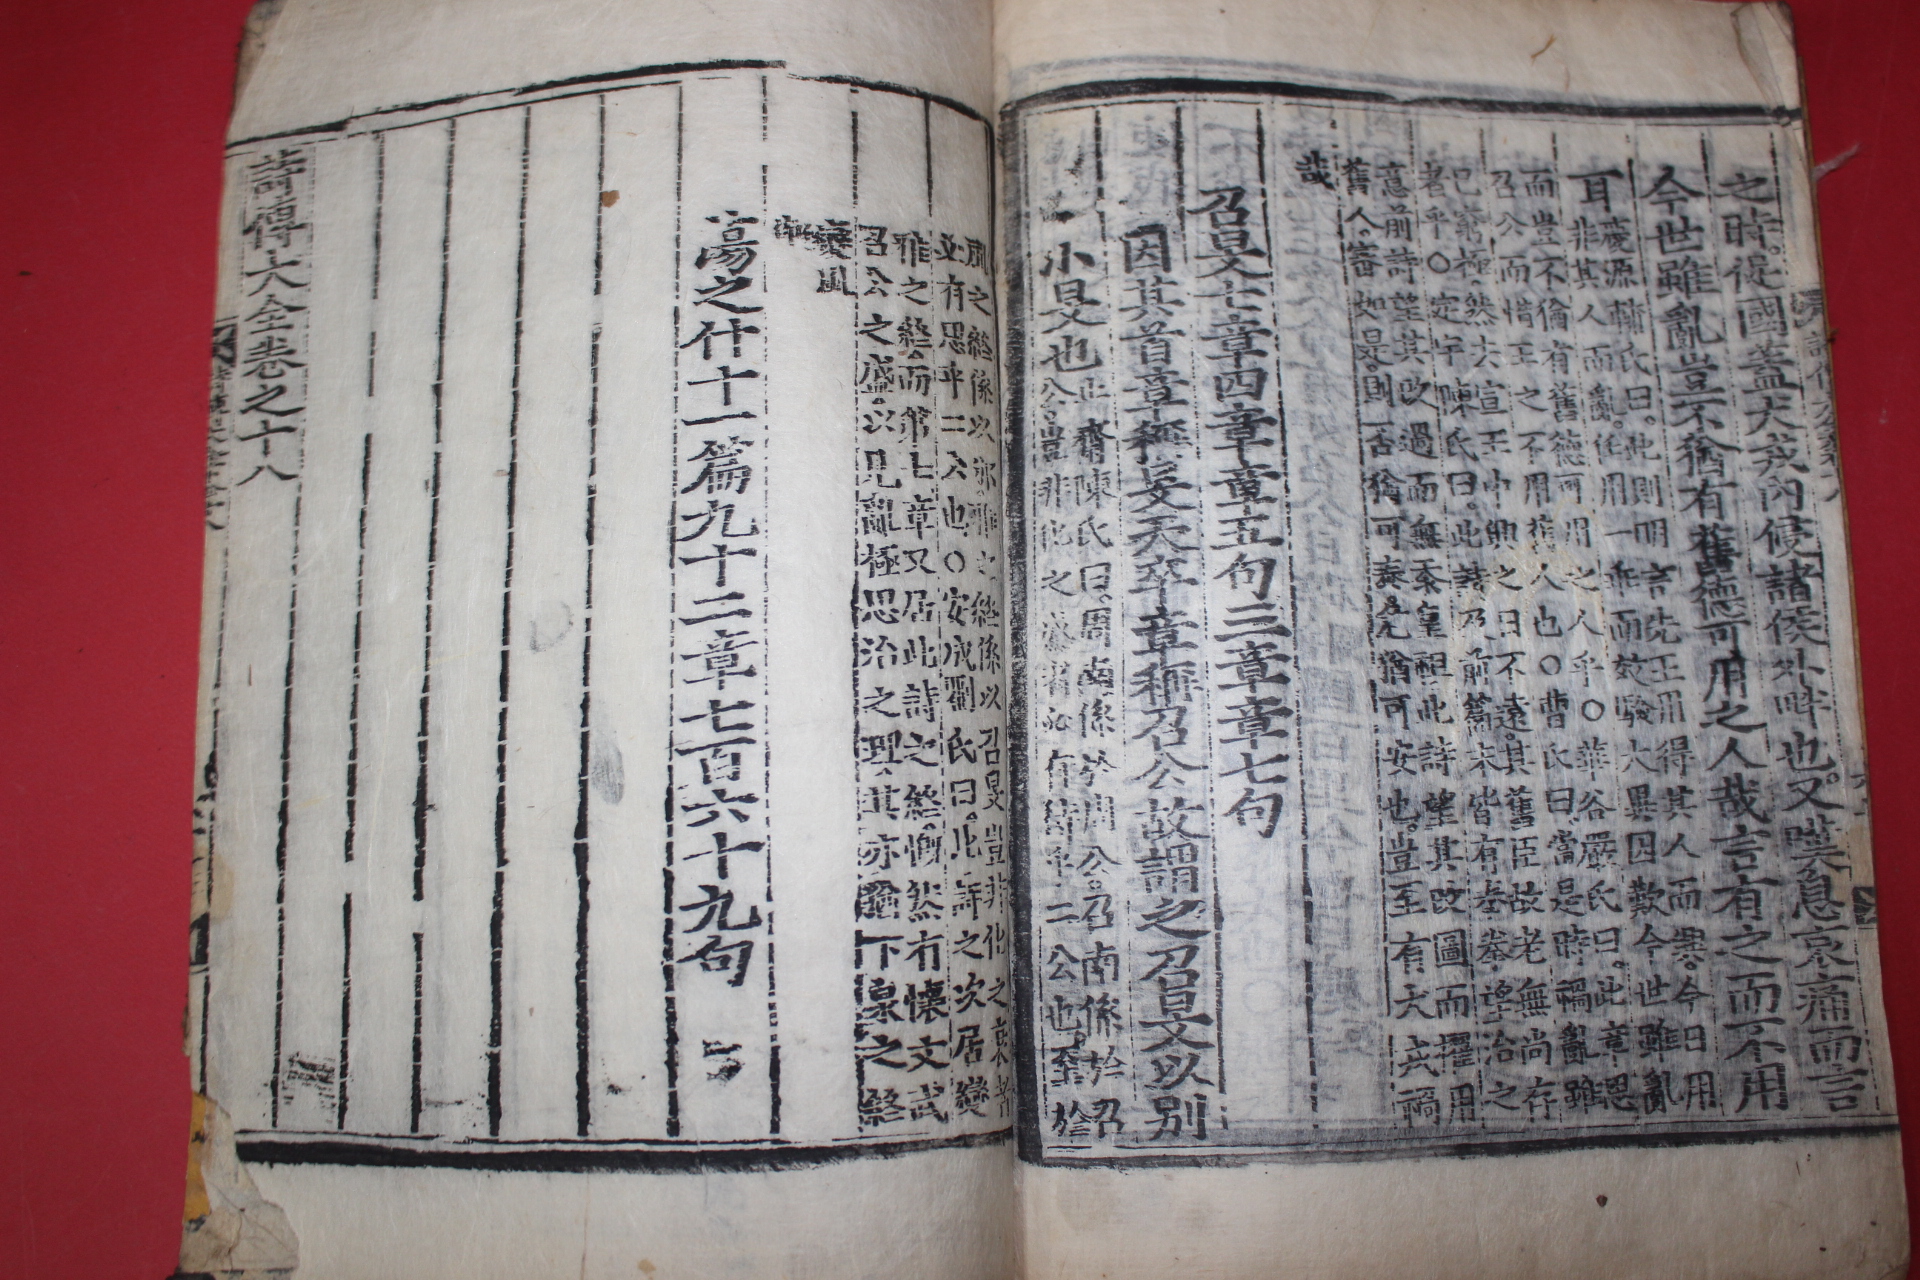 之時從國蓋犬戎內侵諸侯外畔也又嘆息哀痛而言
今世雖亂豈不猶有舊德可用之人哉言有之而不用
耳
慶源輔氏曰此則明言先王用得其人而興今日用
非其人而亂任用一乖而效驗大異因歎今世雖亂
而豈不倫有舊德可用之人乎○華谷嚴氏曰此章思
召公而惜王之不用舊人也○曹氏曰當是時禍亂雖
已窮極然去宣王中興之日不遠其舊臣故老無尚存
者乎○安宇陳氏曰此詩乃前篇末皆有惓惓望治之
意前詩望其改過而無忝皇祖此詩望其改圖而擢用
舊人審如是則舌猶可安也豈至有犬戎禍
哉
召旻七章四章章五句三章章七句
因其首章稱旻天卒章稱召公故謂之召旻以別
小旻也
止齋陳氏曰周南係於周公召南係於召
公豈非化之盛者必有待乎二公也至於
風之終係以雅之終係以召旻豈非化之衰者
必有思乎二公也○安成劉氏曰此詩之次居變
雅之終而第七章又居此詩之終慨然有懷文武
召公之盛以見亂極思治之理其亦下泉之終
變風
蕩之什十一篇九十二章七百六十九句
詩傳大全卷之十八